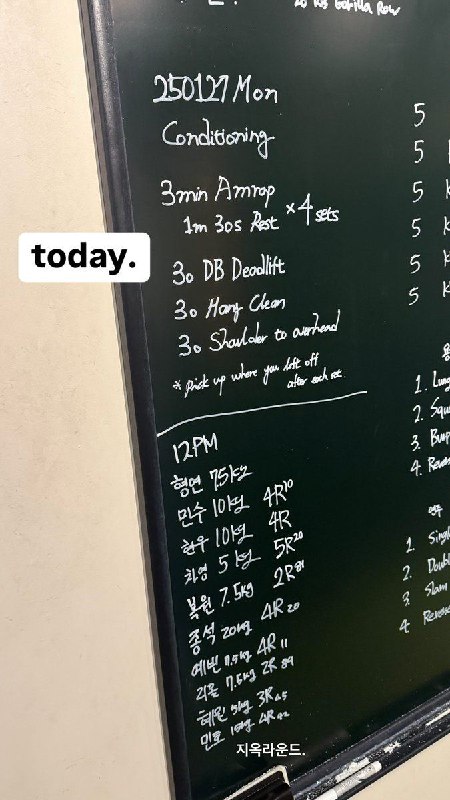 20 lbs Gorilla Row
250127 Mon
Conditioning
3min Amrap
1m 30s Rest × 4 sets
30 DB Deadlift
30 Hang Clean
30 Shoulder to overhead
* Pick up where you left off
after each set
today.
12PM
형연 7.5kg
민수 10kg 4R 10
현우 10kg 4R
차영 5kg 5R 20
복원 7.5kg 2R 81
종석 20kg 4R 20
예빈 7.5kg 4R 11
리을 7.5kg 2R 89
혜원 5kg 3R 45
민호 10kg 4R 42
지옥라운드.
5
5
5 K
5 K
5 K
5 K
1. Lung
2. Squ
3. Burp
4. Rever
1. Singl
2. Doubl
3. Slam
4. Revers